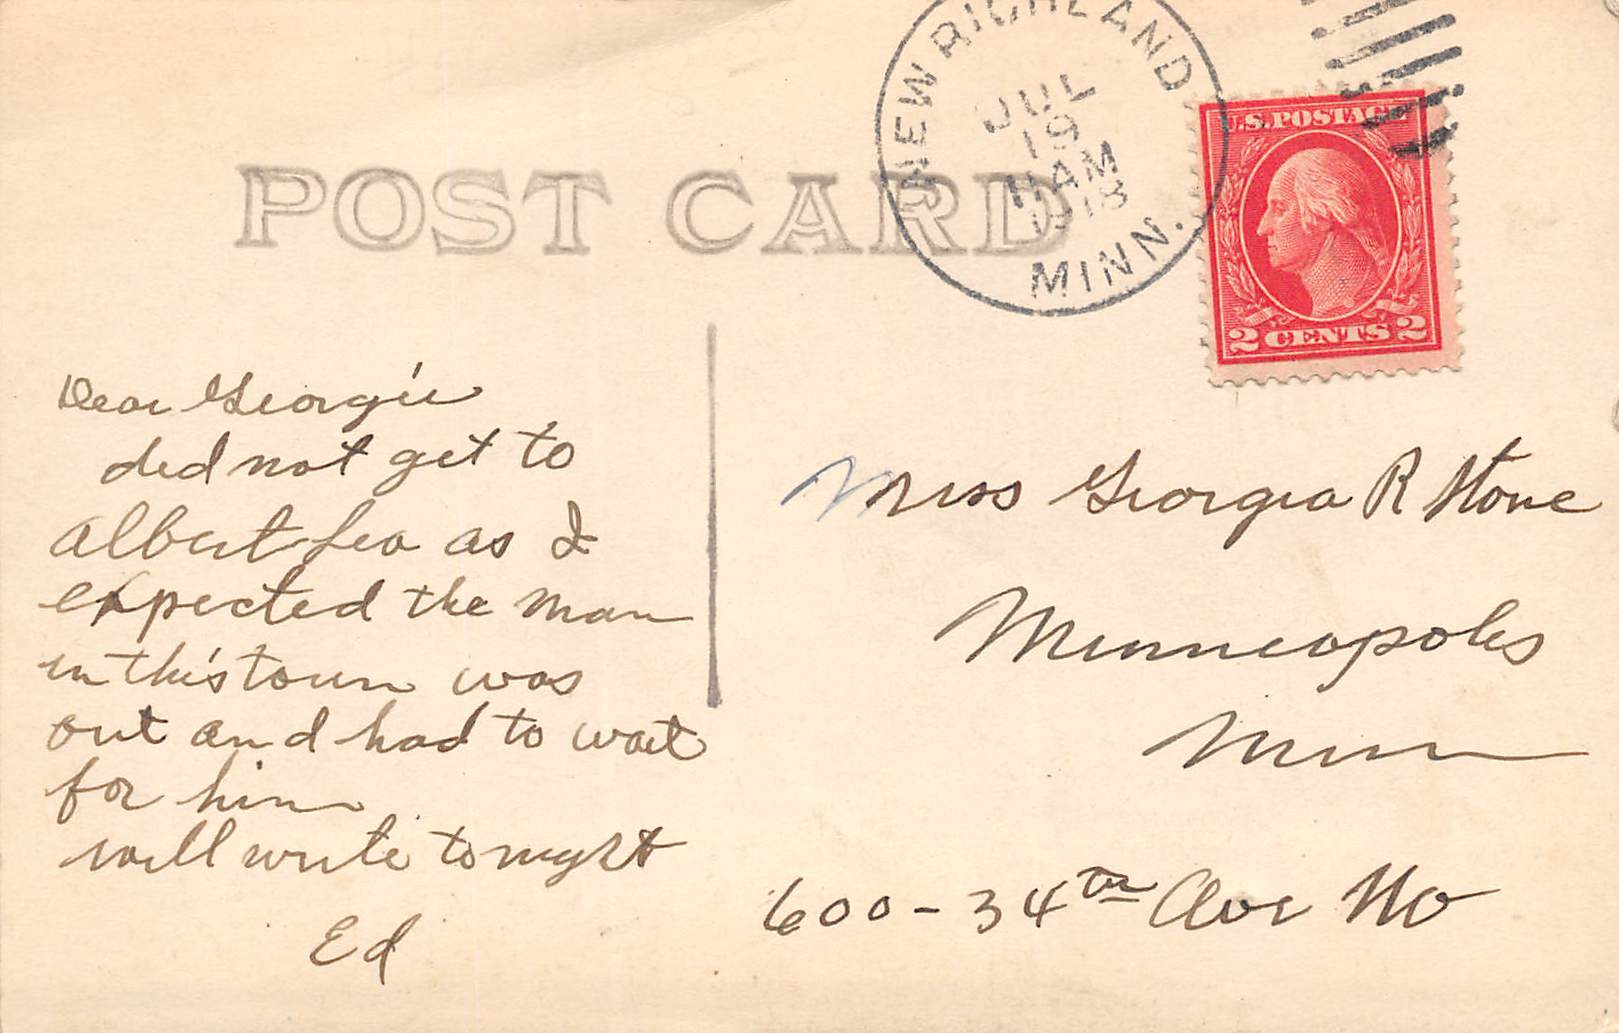 NEW RICHLAND
JUL
19
11AM
1918
MINN.
U.S. POSTAGE
2 CENTS 2
POST CARD
Dear Georgie
did not get to
Albert Lea as I
expected the man
in this town was
out and had to wait
for him
will write tonight
Ed
Miss Georgia R Stone
Minneapolis
Minn
600-34th Ave No